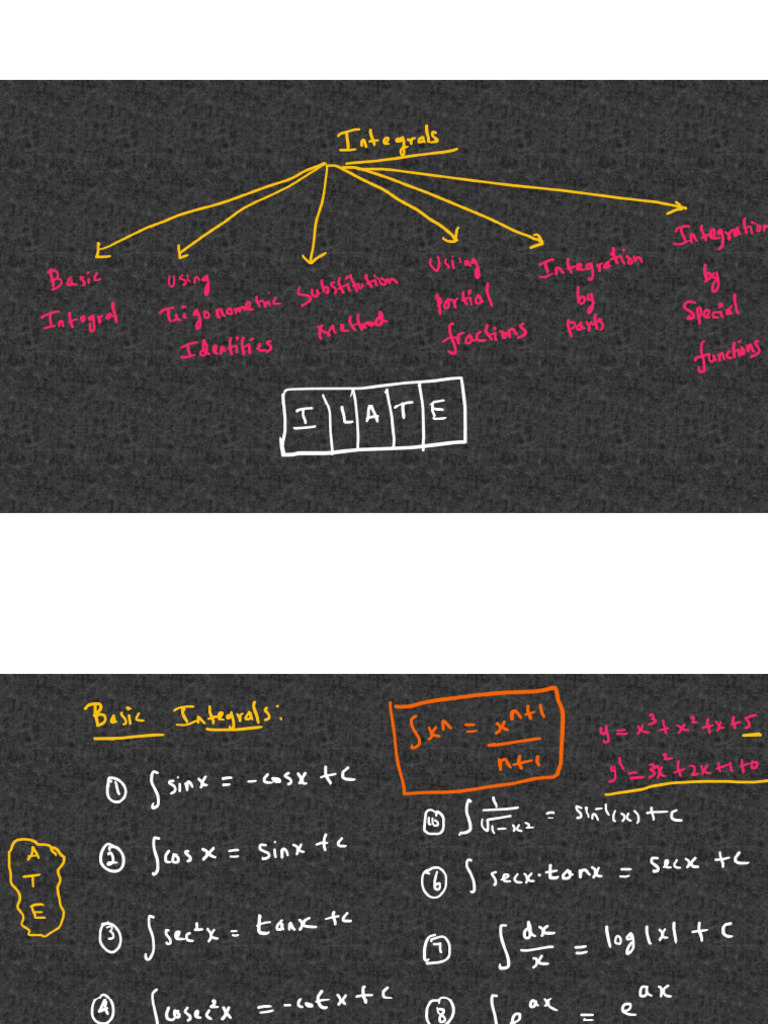 Integrals
Basic
Integral
Using
Trigonometric
Identities
Substitution
Method
Using
Partial
fractions
Integration
by
Parts
Integration
by
Special
functions
I L A T E
Basic Integrals:
① ∫ sinx = -cosx + c
② ∫ cos x = sinx + c
③ ∫ sec²x = tanx + c
④ ∫ cosec²x = -cot x + c
A
T
E
∫xⁿ = xⁿ⁺¹/n+1
y = x³ + x² + x + 5
y¹ = 3x² + 2x + 1 + 0
⑩ ∫ 1/√1-x² = sin⁻¹(x) + c
⑥ ∫ secx·tanx = secx + c
⑦ ∫ dx/x = log|x| + c
⑧ ∫ e^ax = e^ax